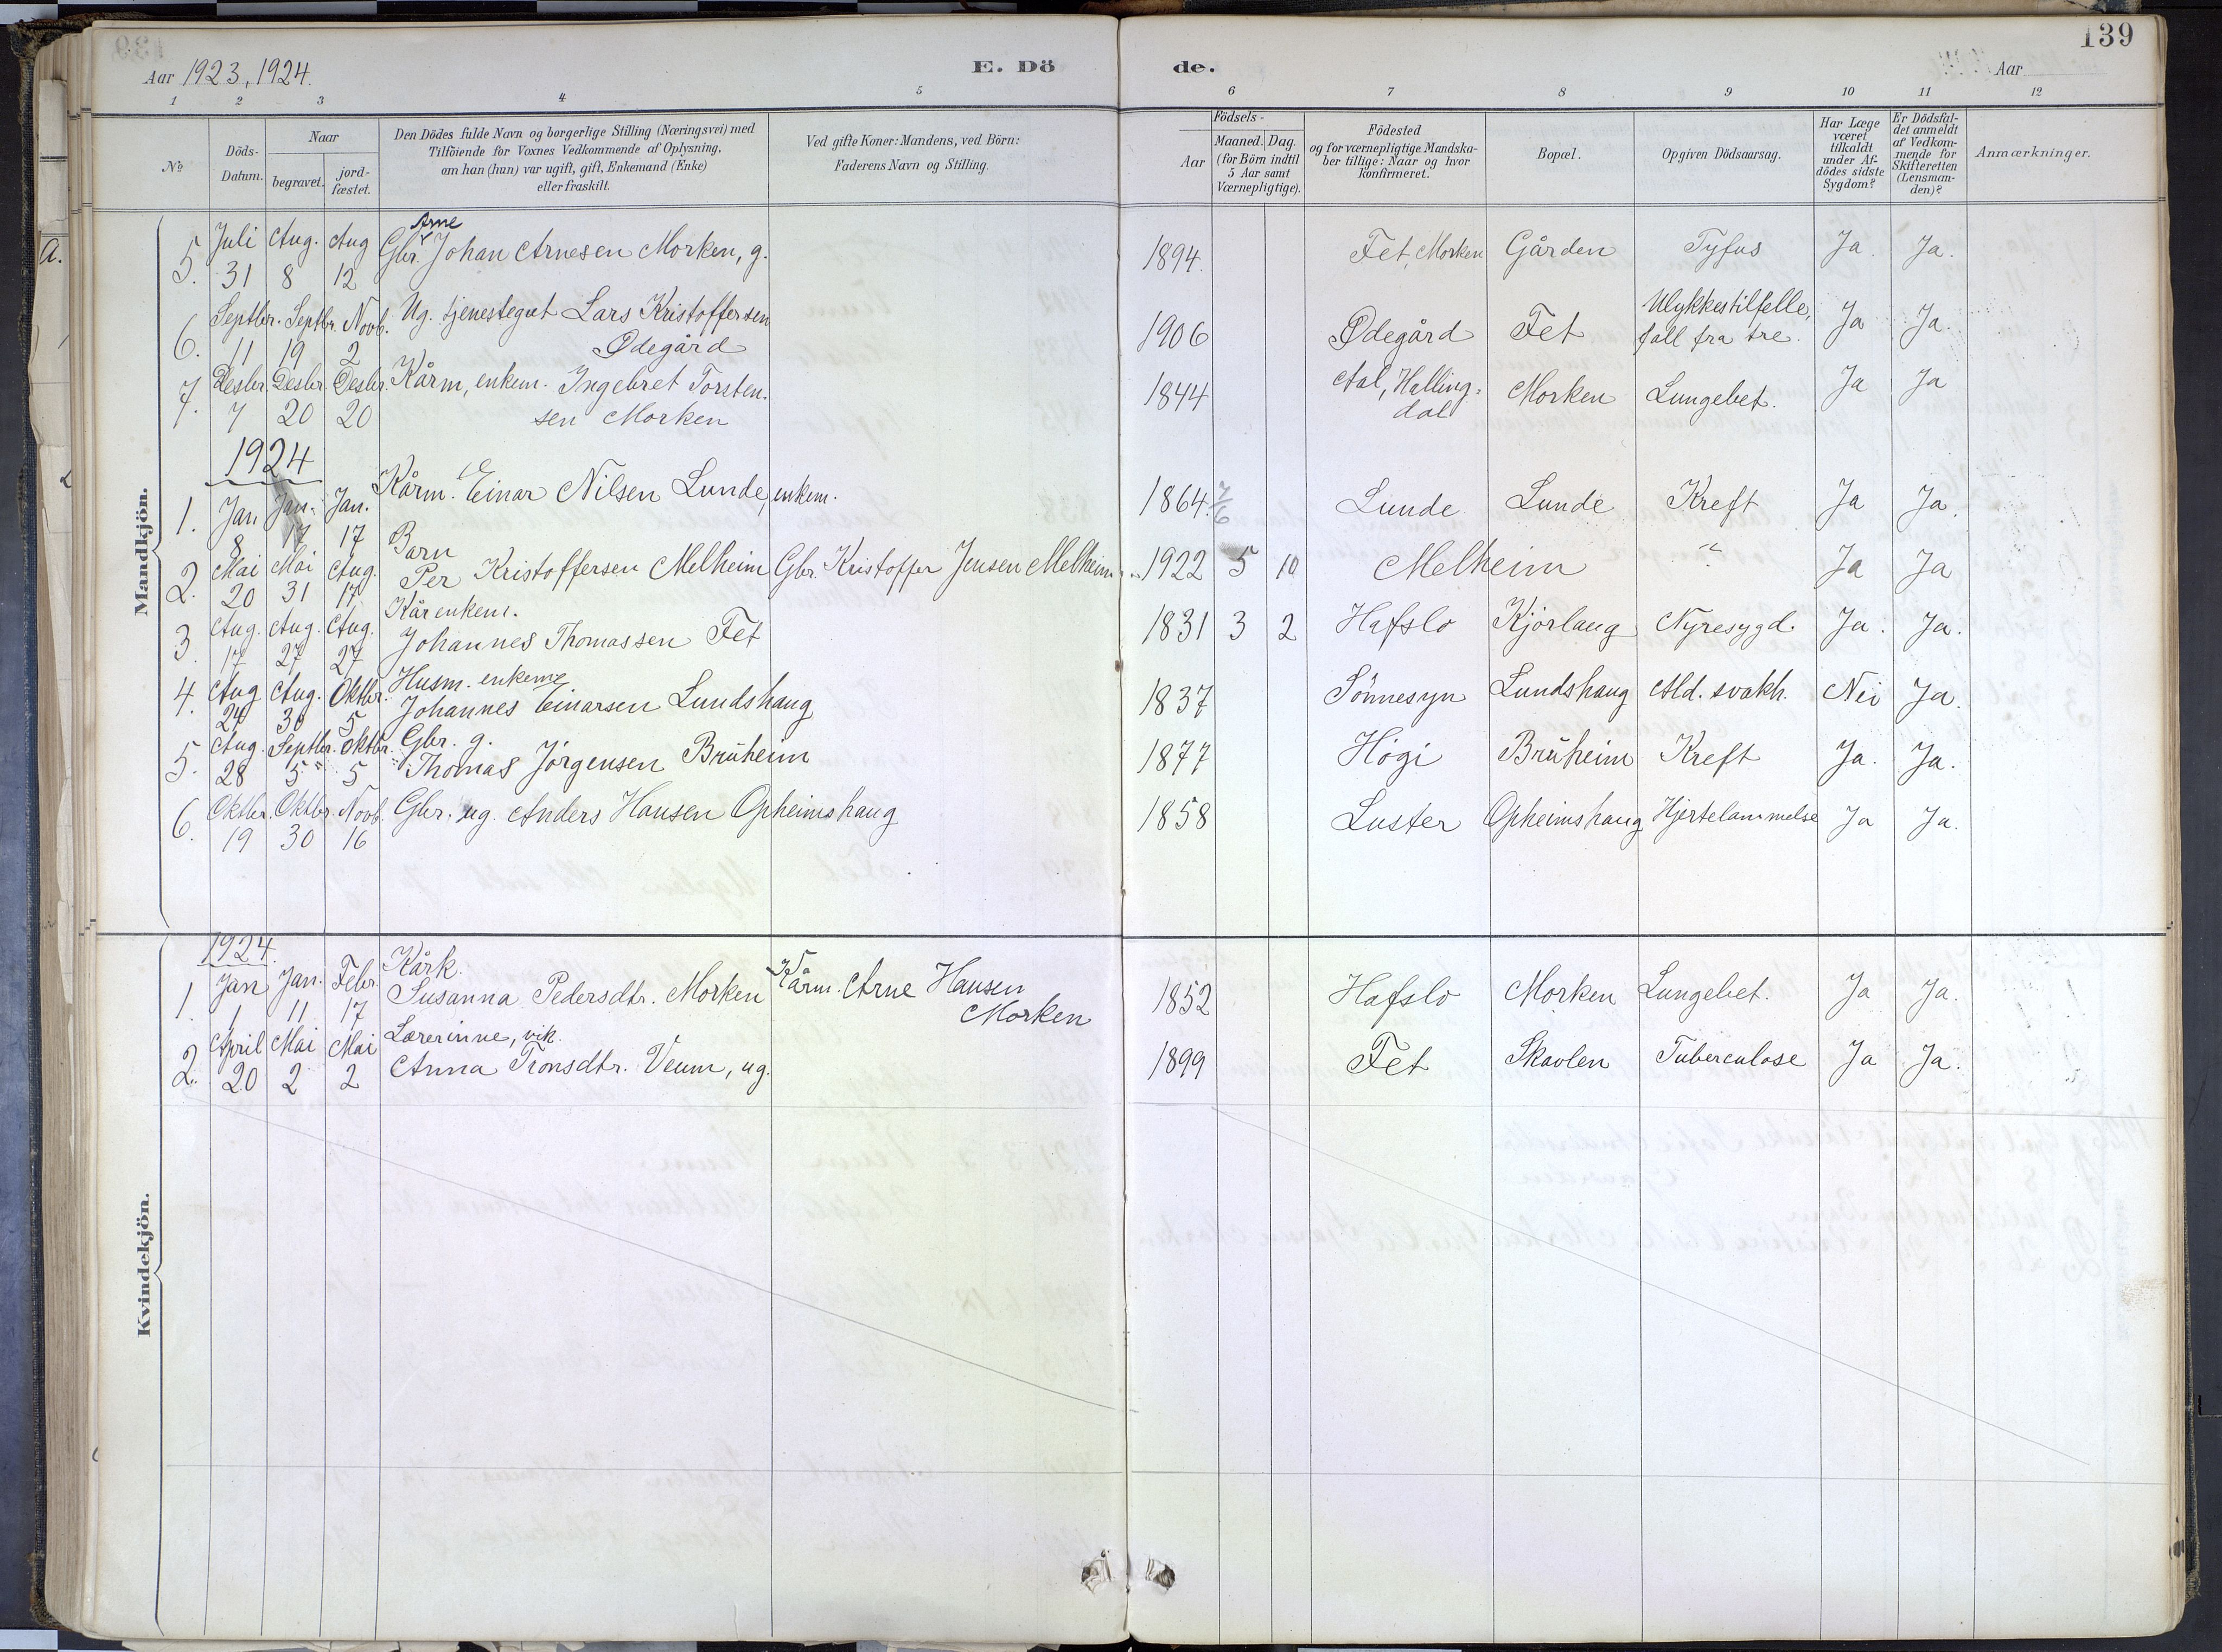 139
Aar 1923, 1924.
E. Dö
de.
Aar
1 2 3 4 5 6 7 8 9 10 11 12
No
Döds-
Datum.
Naar
begravet.
jord-
fæstet.
Den Dödes fulde Navn og borgerlige Stilling (Næringsvei) med
Tilföiende for Voxnes Vedkommende af Oplysning,
om han (hun) var ugift, gift, Enkemand (Enke)
eller fraskilt.
Ved gifte Koner: Mandens, ved Börn:
Faderens Navn og Stilling.
Födsels-
Aar
Maaned. Dag.
(for Börn indtil
5 Aar samt
Værnepligtige).
Födested
og for værnepligtige Mandska-
ber tillige: Naar og hvor
konfirmeret.
Bopæl.
Opgiven Dödsaarsag.
Har Læge
været
tilkaldt
under Af-
dödes sidste
Sygdom?
Er Dödsfal-
det anmeldt
af Vedkom-
mende for
Skifteretten
(Lensman-
den)?
Anmærkninger.
Mandkjön.
Arne
Juli Aug. Aug Gbr. Johan Arnesen Morken, g.
5. 31 8 12 1894. Fet, Morken Gården Tyfus Ja. Ja.
Septbr. Septbr. Novb. Ug. tjenestegut Lars Kristoffersen Ulykkestilfelle,
6. 11 19 2 Ødegård 1906 Ødegård Fet fall fra tre. Ja Ja.
Desbr. Desbr. Desbr. Kårm, enkem. Ingebret Torsten- Aal, Halling-
7. 7 20 20 sen Morken 1844 dal Morken Lungebet. Ja Ja
1924
Jan Jan. Jan. Kårm. Einar Nilsen Lunde, enkem.
1. 8 17 17 1864. 7/6 Lunde Lunde Kreft Ja Ja.
Mai Mai Aug. Barn
2. 20 31 17 Per Kristoffersen Melheim Gbr. Kristoffer Jensen Melheim 1922 5 10 Melheim " Ja Ja
Aug. Aug. Aug. Kårenkem.
3. 17 27 27 Johannes Thomassen Fet 1831 3 2 Hafslo Kjörlaug Nyresygd. Ja. Ja.
Aug Aug. Oktbr. Husm. enkem
4. 24 30 5 Johannes Einarsen Lundshaug 1837 Sönnesyn Lundshaug Ald. svakh. Nei Ja.
Aug. Septbr. Oktbr. Gbr. g.
5. 28 5 5 Thomas Jörgensen Bruheim 1877 Högi Bruheim Kreft Ja. Ja.
Oktbr. Oktbr. Novb. Gbr. ug. Anders Hansen Opheimshaug
6. 19 30 16 1858 Luster Opheimshaug Hjertelammelse Ja Ja.
Kvindekjön.
1924.
Jan Jan. Febr. Kårk.
1. 1 11 17 Susanna Pedersdtr. Morken Kårm. Arne Hansen
Morken 1852 Hafslo Morken Lungebet. Ja Ja.
April Mai Mai Lærerinne, vik.
2. 20 2 2 Anna Tronsdtr. Veum, ug. 1899 Fet Skavlen Tuberculose Ja Ja.